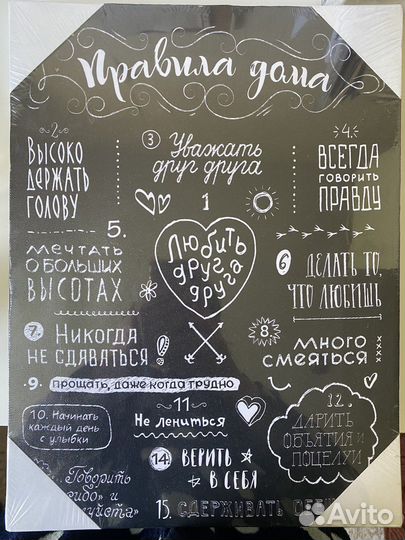 Правила дома
2
Высоко
держать
голову
3 Уважать
друг друга
4.
Всегда
говорить
правду
1
Любить
друг
друга
5.
Мечтать
о больших
высотах
6 Делать то,
что любишь
7. Никогда
не сдаваться!
8. Много
смеяться
9. прощать, даже когда трудно
10. Начинать
каждый день
с улыбки
11
Не лениться
12.
Дарить
объятия и
поцелуи
Говорить
и
14 Верить
в себя
15. Сдерживать
Avito